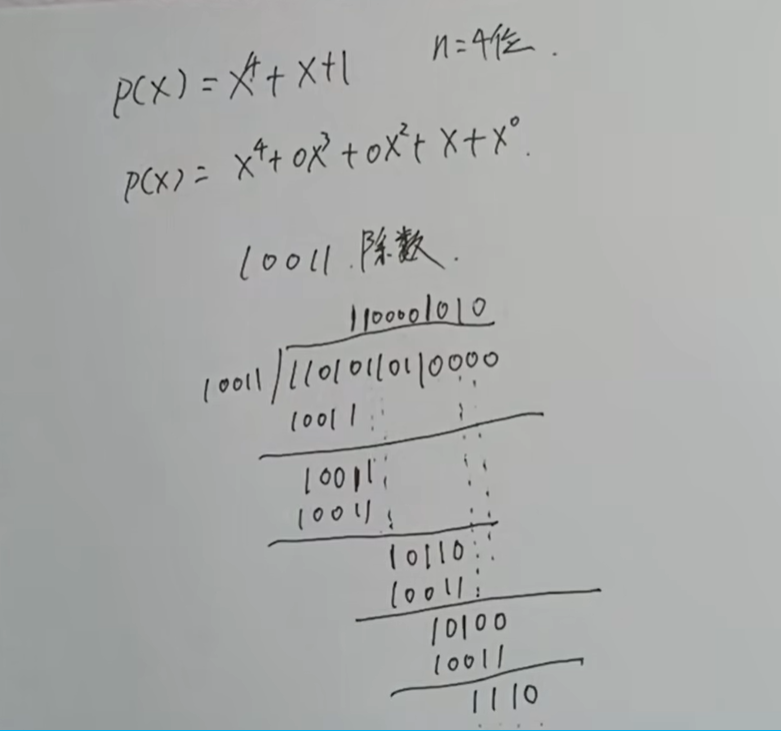 P(X) = X⁴ + X + 1 n=4位.
P(X) = X⁴ + 0X³ + 0X² + X + X⁰.
10011 除数.
110001010
10011 / 11010110110000
10011
10011
10011
10110
10011
10100
10011
1110